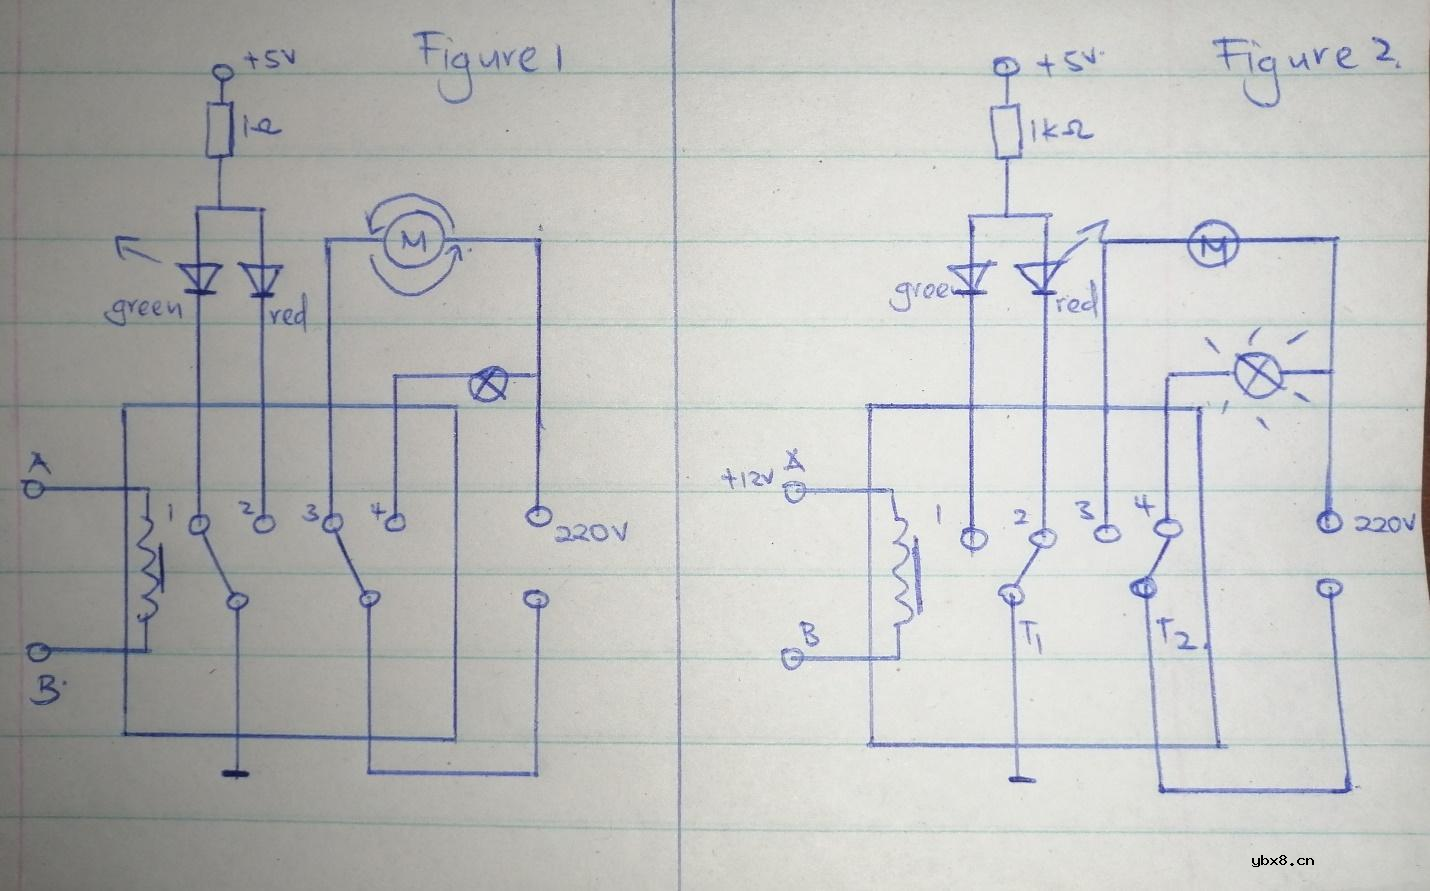 Figure 1
+5V
1Ω
M
green
red
A
1
2
3
4
220V
B
Figure 2.
+5V
1KΩ
M
green
red
+12V
A
1
2
3
4
220V
B
T1
T2
ybx8.cn